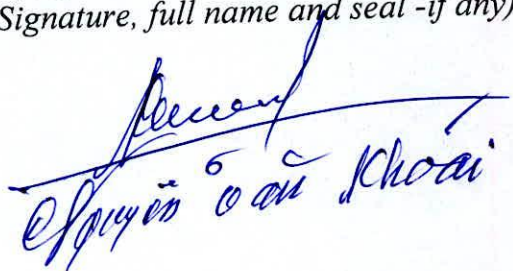 Signature, full name and seal -if any)
Nguyễn Văn Khoái